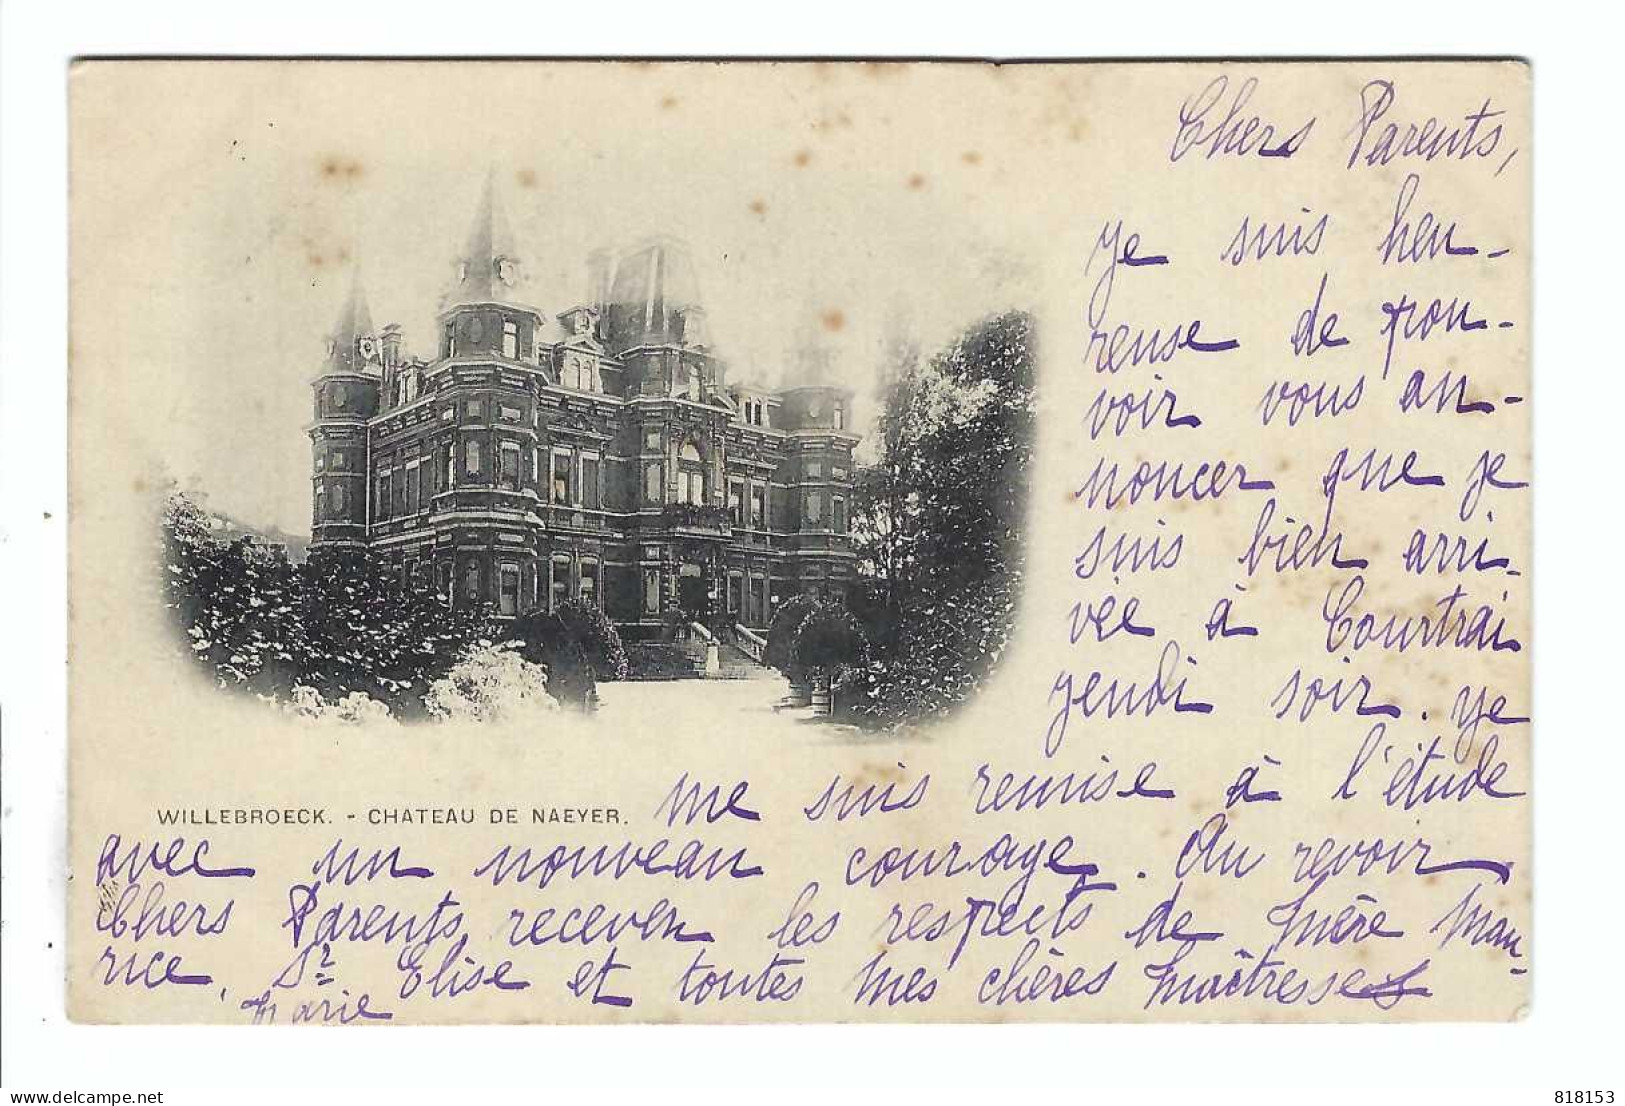 Chers Parents,
Je suis heu-
reuse de pou-
voir vous an-
noncer que je
suis bien arri-
vée à Courtrai
jeudi soir. Je
me suis remise à l'étude
WILLEBROECK. - CHATEAU DE NAEYER.
avec un nouveau courage. Au revoir
Chers Parents, recevez les respects de Mère Mau-
rice, Sr Elise et toutes mes chères Maîtresses
Marie
delcampe.net
818153